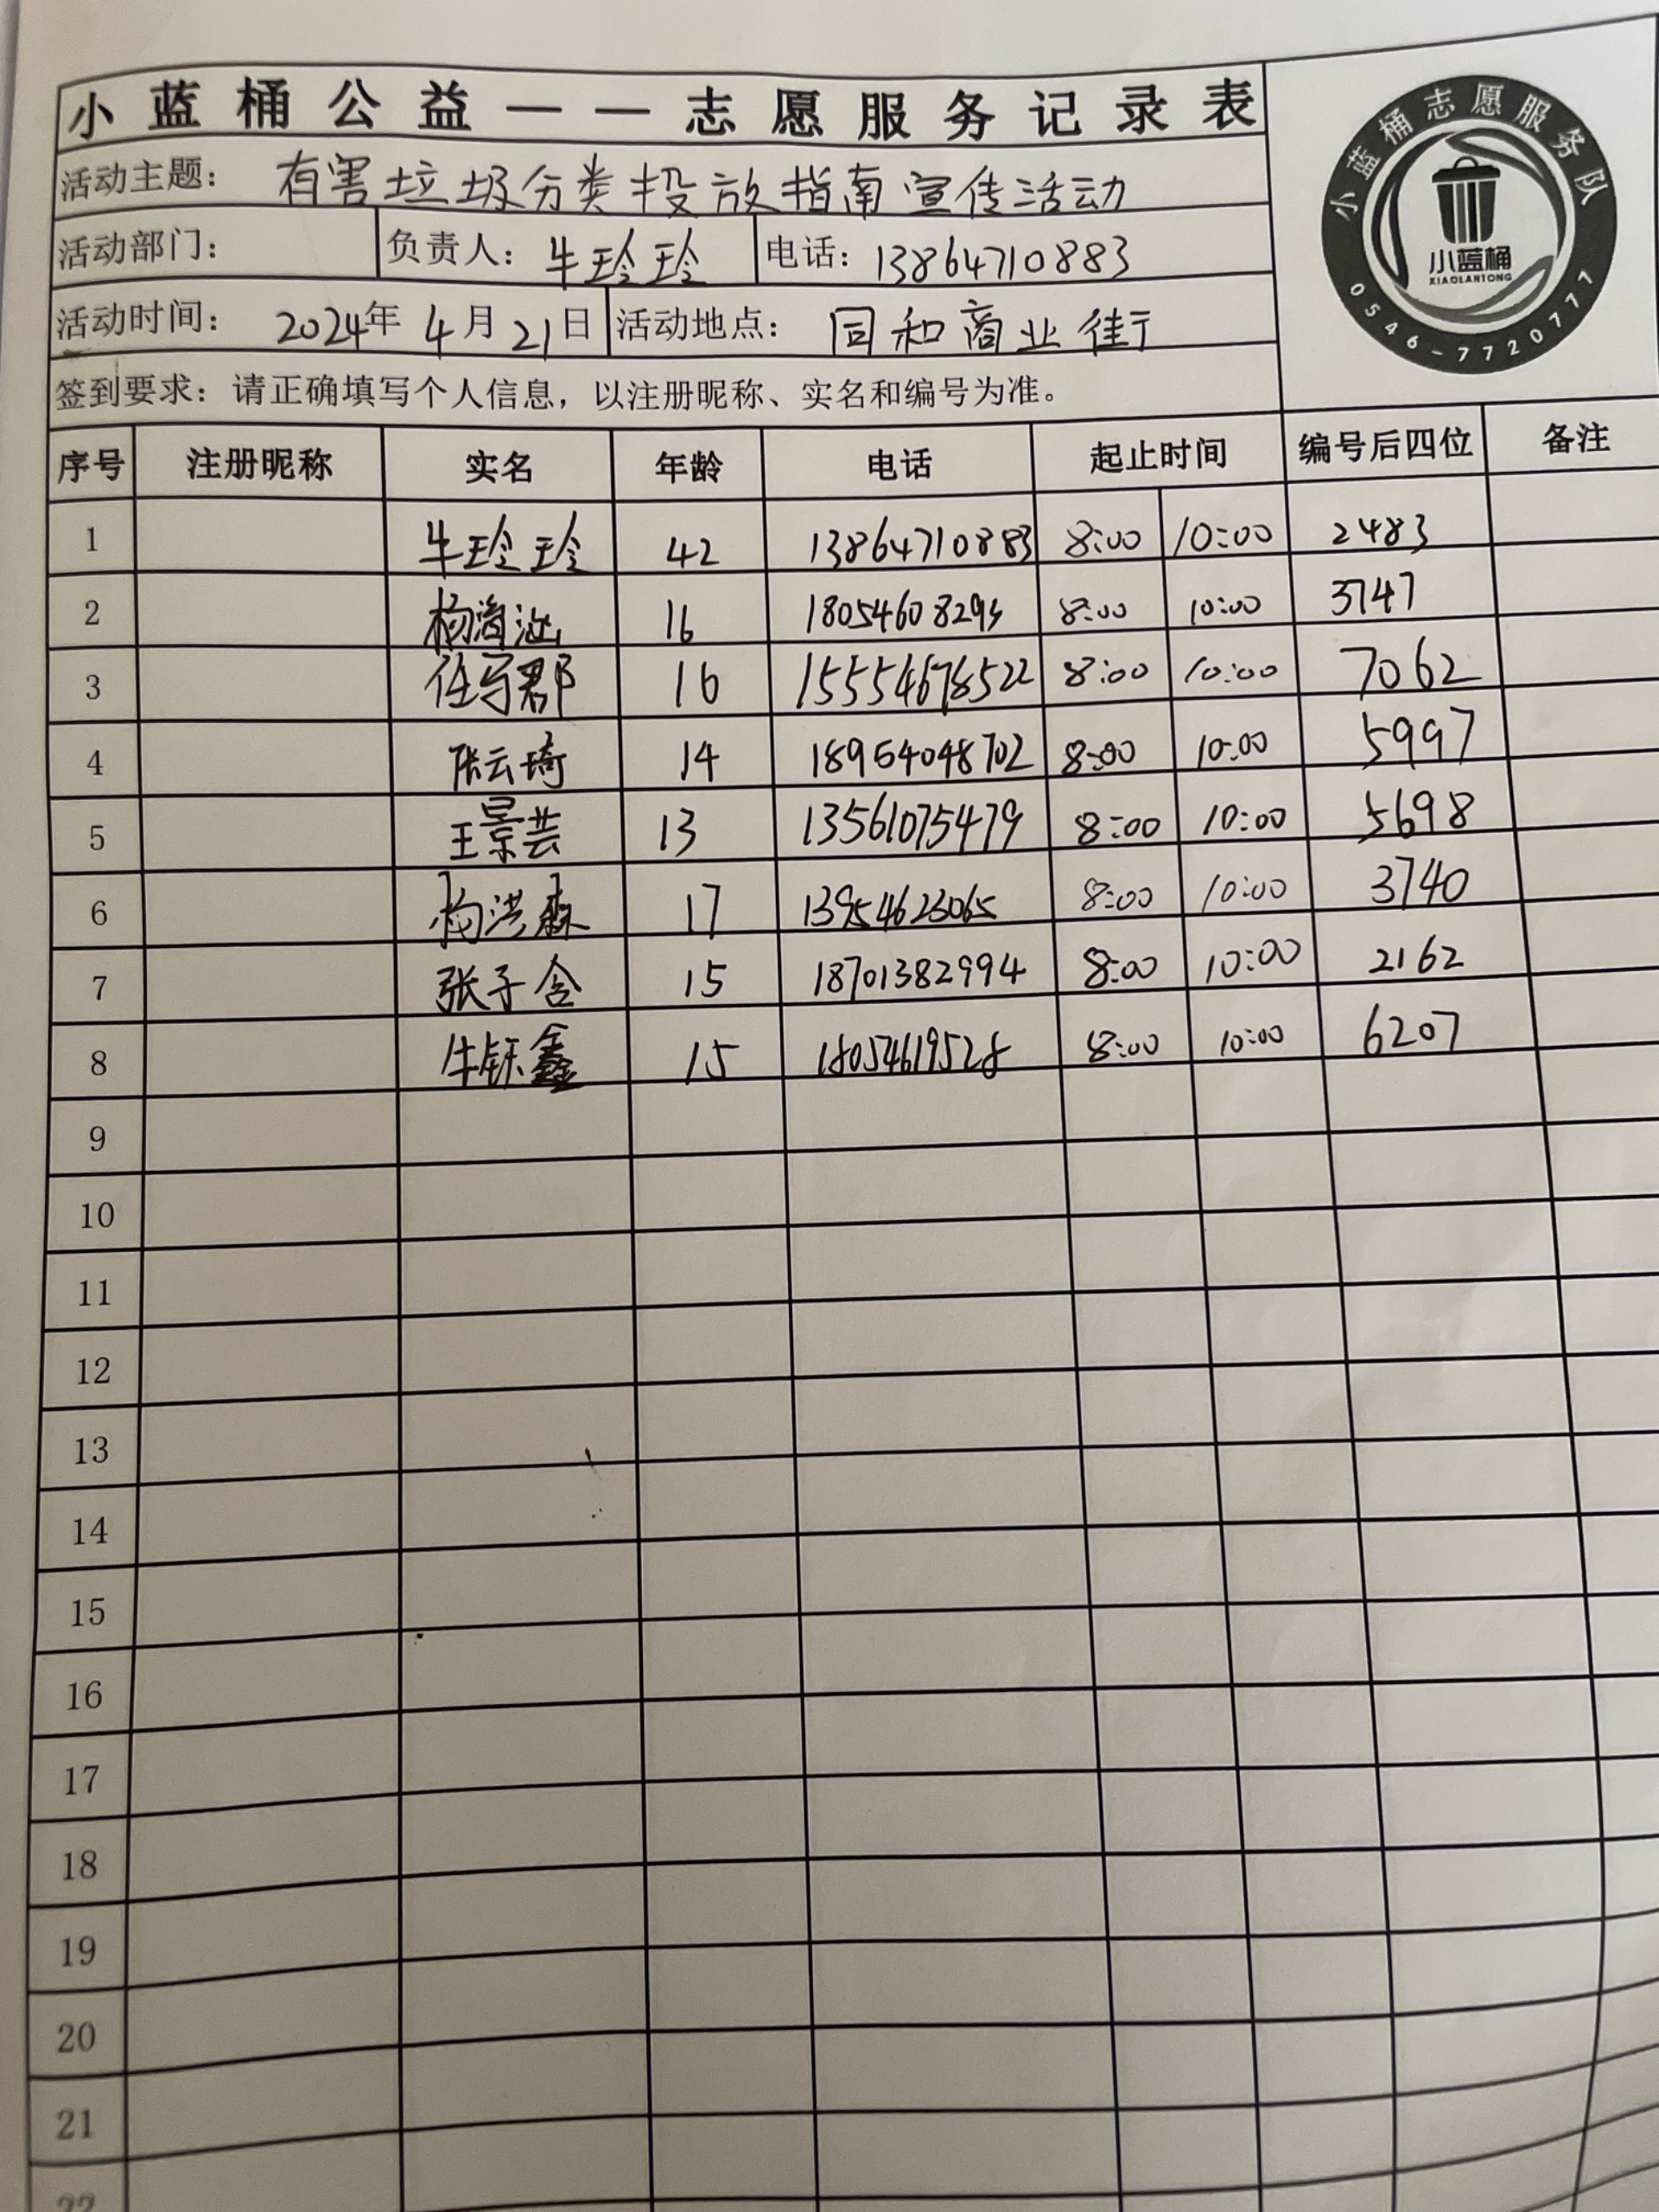 小蓝桶公益——志愿服务记录表
活动主题：有害垃圾分类投放指南宣传活动
活动部门： 负责人：牛玲玲 电话：13864710883
活动时间：2024年4月21日 活动地点：同和商业街
签到要求：请正确填写个人信息，以注册昵称、实名和编号为准。
小蓝桶志愿服务队
小蓝桶
XIAOLANTONG
0546-7720777
序号 注册昵称 实名 年龄 电话 起止时间 编号后四位 备注
1 牛玲玲 42 13864710883 8:00 10:00 2483
2 杨海 16 18054608293 8:00 10:00 3747
3 任宇郡 16 15554678522 8:00 10:00 7062
4 张云琦 14 18954048702 8:00 10:00 5997
5 王景芸 13 13561075479 8:00 10:00 5698
6 杨洪森 17 13954623065 8:00 10:00 3740
7 张子含 15 18701382994 8:00 10:00 2162
8 牛钰鑫 15 18054619528 8:00 10:00 6207
9
10
11
12
13
14
15
16
17
18
19
20
21
22